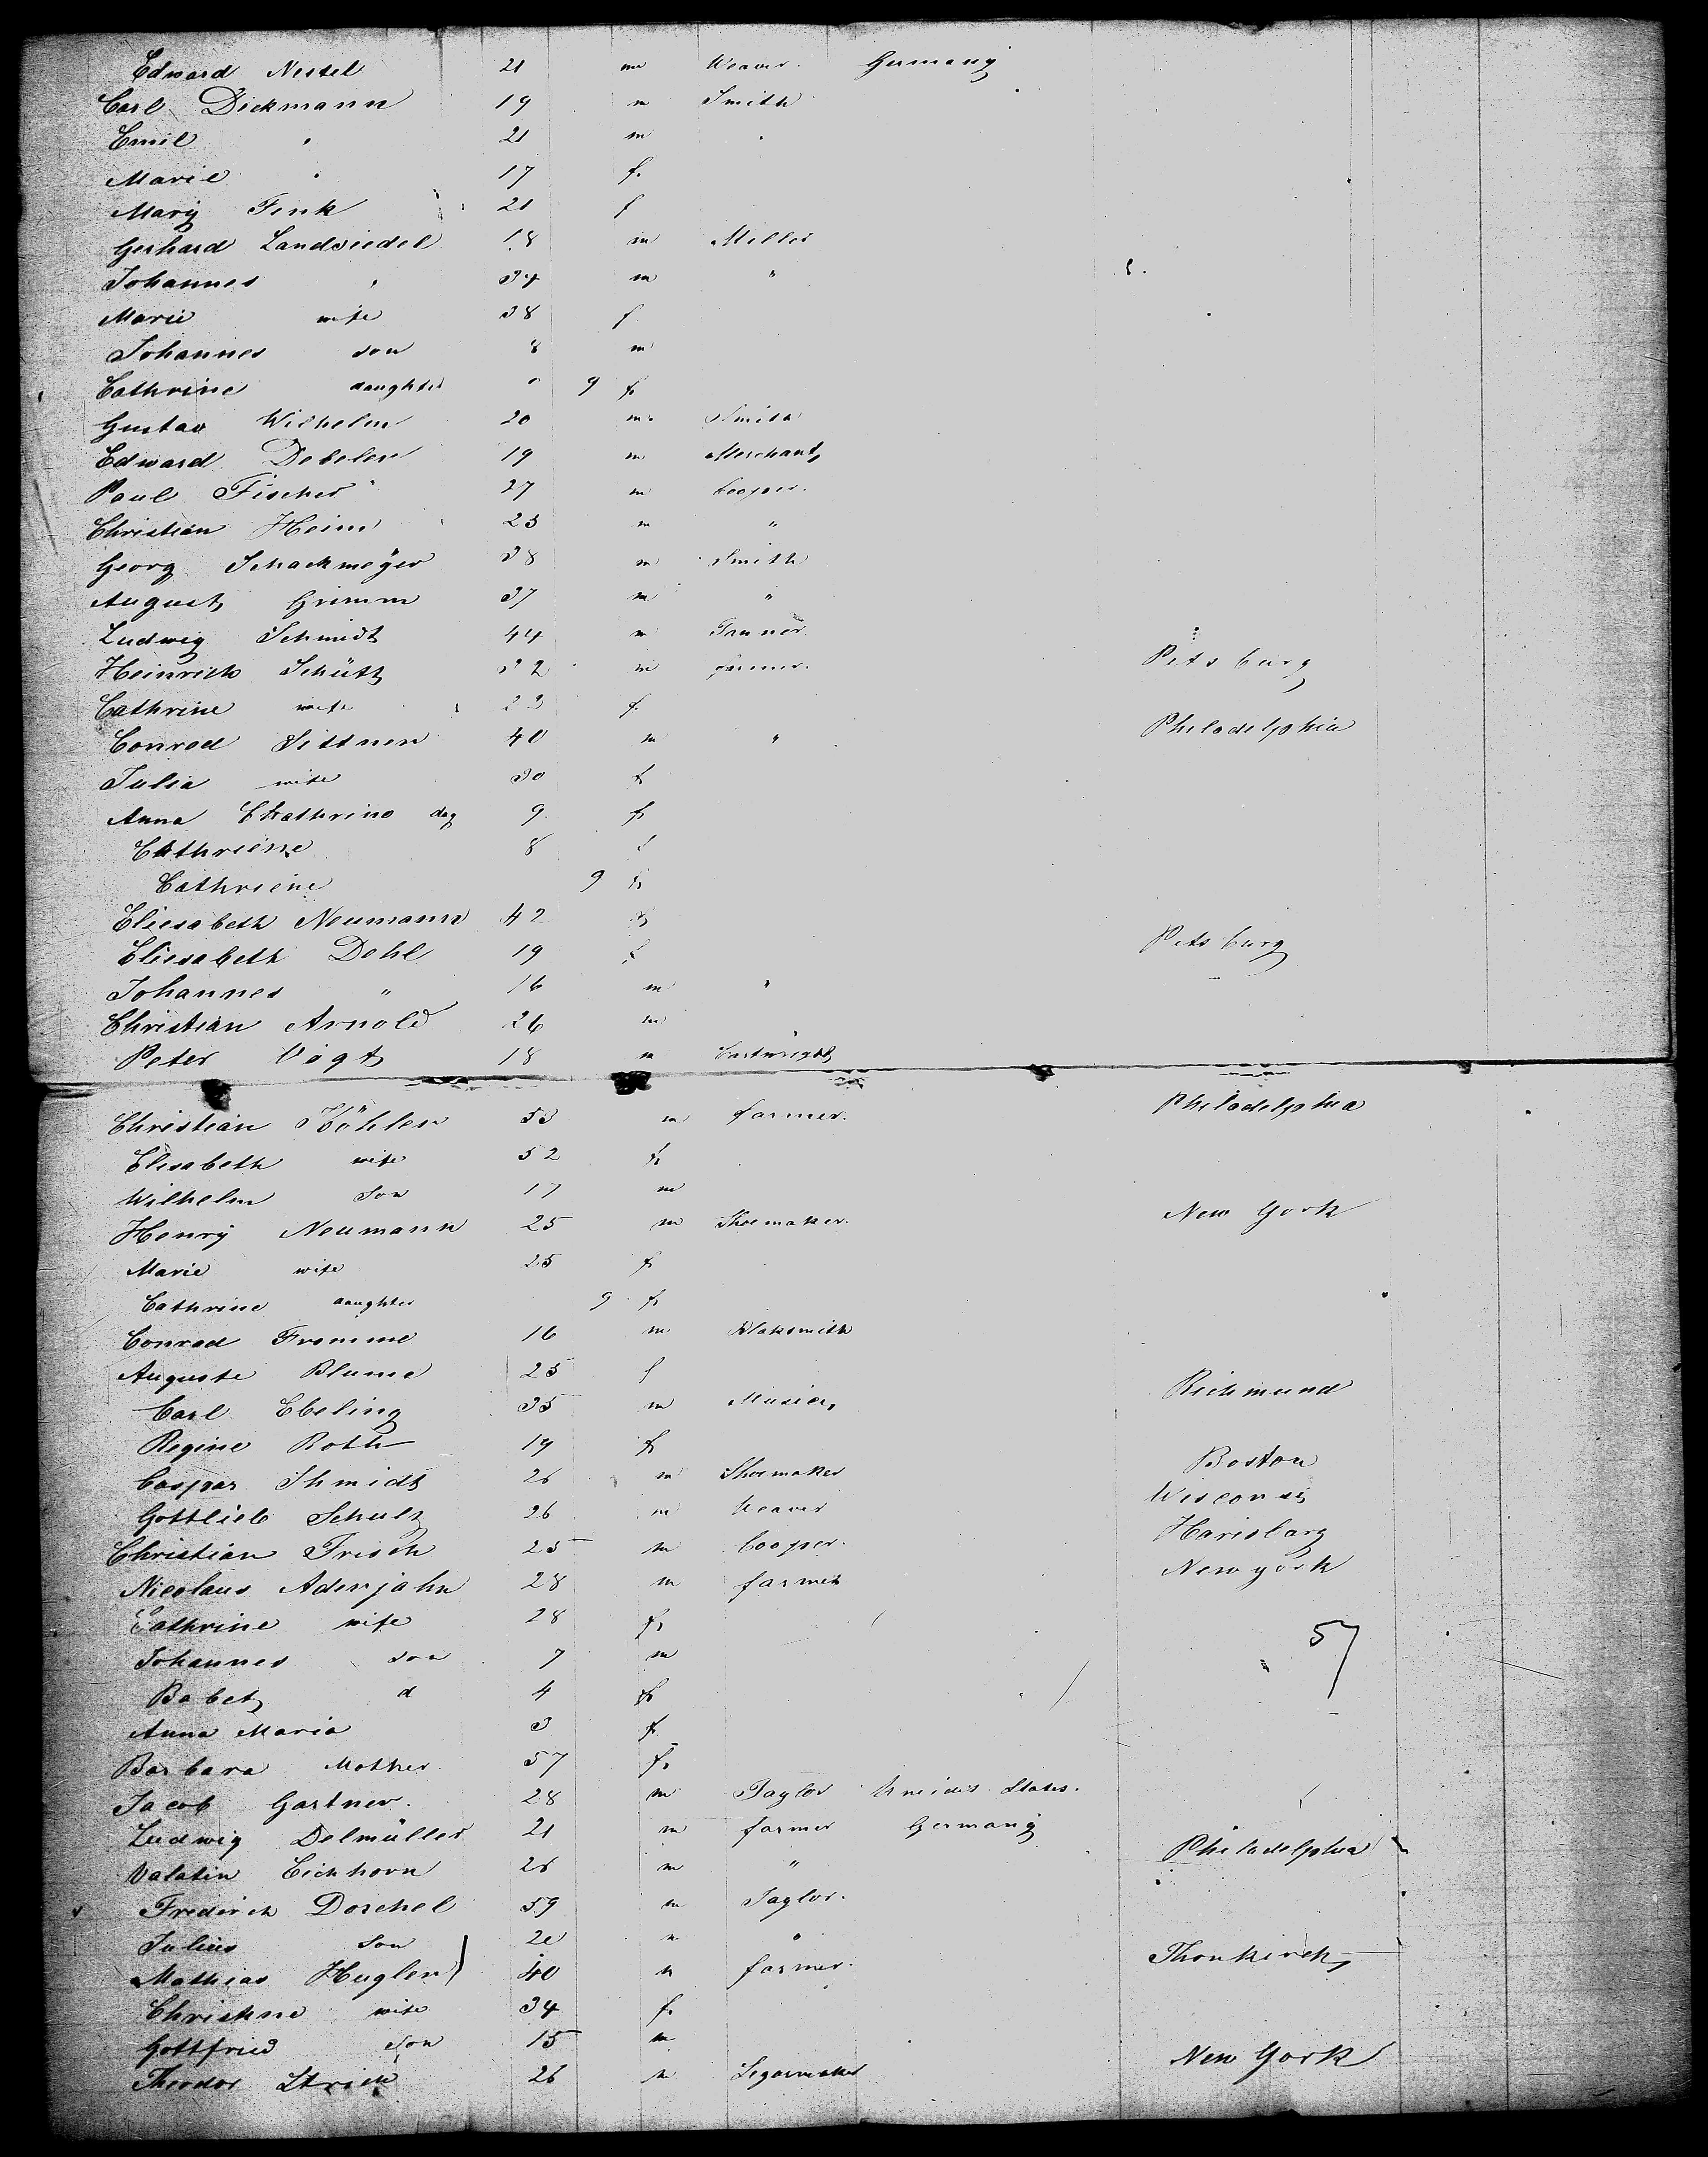 Edward Nestel 21 m Weaver. Germany
Carl Dickmann 19 m Smith
Emil " 21 m "
Marie " 17 f.
Mary Fink 21 f
Gerhard Landsiedel 18 m Miller
Johannes " 34 m "
Marie wife 38 f
Johannes son 8 m
Cathrine daughter 9 f
Gustav Wilhelm 20 m. Smith
Edward Debeler 19 m Merchant
Paul Fischer 27 m Cooper.
Christian Heim 23 m "
Georg Schackmeÿer 38 m Smith
August Grimm 37 m "
Ludwig Schmidt 44 m Tanner
Heinrich Schütz 32 m farmer. Pitsburg
Cathrine wife 23 f.
Conrad Sittner 40 m " Philadelphia
Julia wife 30 f
Anna Chathrine dag 9 f
Cathriene 8 f
Cathriene 9 f
Eliesabeth Neumann 42 f
Eliesabeth Dehl 19 f Pitsburg
Johannes " 16 m "
Christian Arnold 26 m
Peter Vogt 18 m Cartwright
Christian Köhler 53 m farmer. Philadelphia
Elisabeth wife 52 f
Wilhelm son 17 m
Henrÿ Neumann 25 m Shoemaker. New York
Marie wife 25 f
Cathrine daughter 9 f
Conrad Fromme 16 m Blaksmith
Auguste Blume 25 f
Carl Ebeling 35 m Music Richmund
Regine Roth 19 f
Caspar Shmidt 26 m Shoemaker Boston
Gottlieb Schulz 26 m Weaver Wisconsi
Christian Frisch 25 m Cooper. Harisburg
Nicolaus Adenjahn 28 m farmer New york
Cathrine wife 28 f
57
Johannes son 7 m
Babet d 4 f
Anna Maria 3 f
Barbara Mother 57 f.
Jacob Gartner. 28 m Taylor Uneidet States.
Ludwig Delmüller 21 m farmer Germany
Valatin Eichhorn 26 m " Philadelphia
Fredirch Dorchel 59 m Taylor.
Julius Son 20 m "
Mathias Hugler 40 m farmer. Thonkirch
Christine wife 34 f.
Gottfried Son 15 m
Theodor Strick 26 m Segarmaker New York